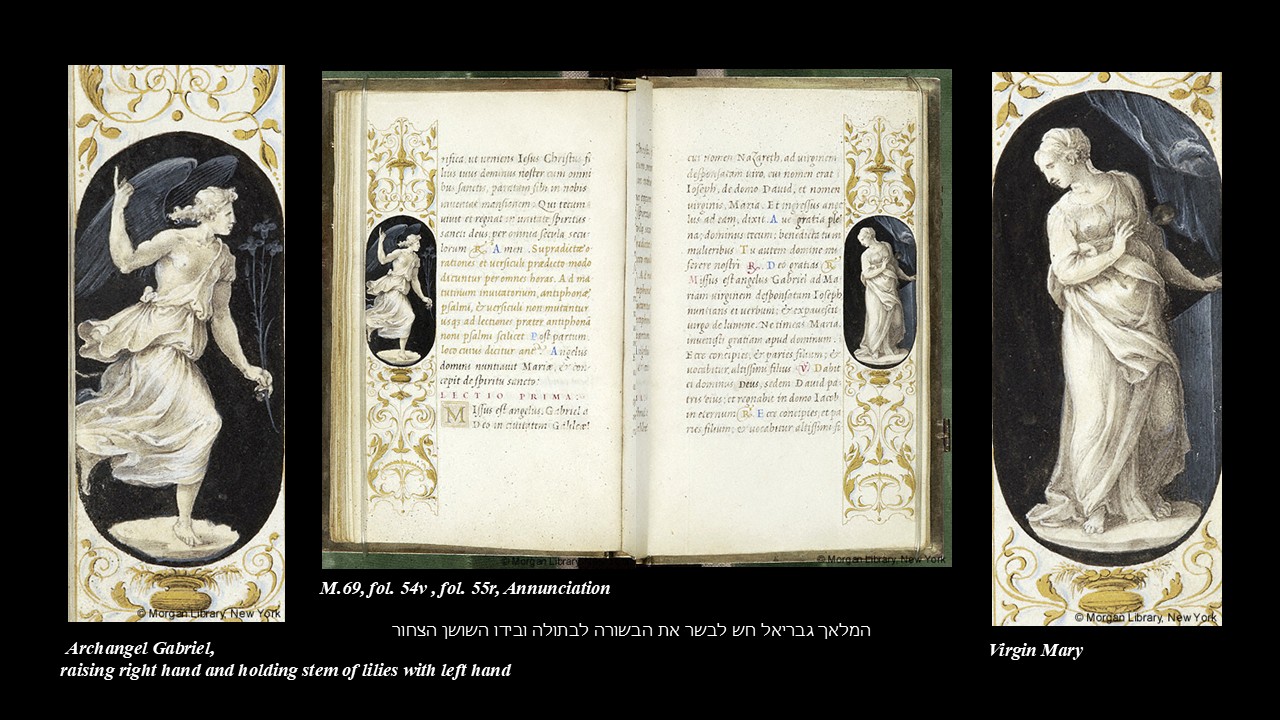 © Morgan Library, New York
Archangel Gabriel,
raising right hand and holding stem of lilies with left hand
rifica, ut veniens Iesus Christus fi
lius tuus dominus noster cum omni
bus sanctis, paratam sibi in nobis
inveniat mansionem. Qui tecum
vivit et regnat in unitate spiritus
sancti deus, per omnia sęcula sęcu
lorum R. Amen. Supradictæ o
rationes et versiculi prædicto modo
dicuntur per omnes horas. Ad ma
tutinum invitatorium, antiphonæ
psalmi, & versiculi non mutantur
usq; ad lectiones præter antiphonā
noni psalmi scilicet Post partum,
loco cuius dicitur anā. Angelus
domini nuntiavit Mariæ, & con-
cepit de spiritu sancto:
LECTIO PRIMA:
Missus est angelus, Gabriel a
Deo in civitatem Galileæ
cui nomen Nazareth, ad virginem
desponsatam viro, cui nomen erat
Ioseph, de domo David, et nomen
virginis, Maria. Et ingressus ange
lus ad eam, dixit. Ave gratia ple
na; dominus tecum; benedicta tu in
mulieribus Tu autem domine mi
serere nostri R. Deo gratias R.
Missus est angelus Gabriel ad Ma
riam virginem desponsatam Ioseph
nuntians ei verbum; & expavescit
virgo de lumine. Ne timeas Maria.
invenisti gratiam apud dominum.
Ecce concipies, & paries filium; &
vocabitur, altissimi filius V. Dabit
ei dominus Deus, sedem David pa
tris eius; et regnabit in domo Iacob
in eternum R. Ecce concipies; et pa
ries filium; & vocabitur altissimi fi
© Morgan Library, New York
© Morgan Library, New York
M.69, fol. 54v , fol. 55r, Annunciation
המלאך גבריאל חש לבשר את הבשורה לבתולה ובידו השושן הצחור
© Morgan Library, New York
Virgin Mary